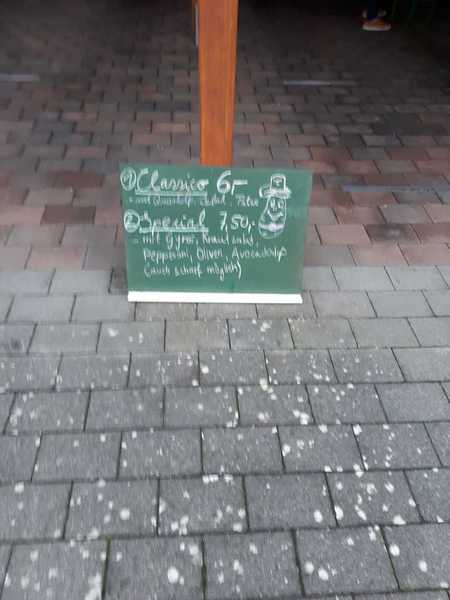 ① Classico 6,-
= mit
② Special 7,50,-
= mit Gyros, Krautsalat,
Pepperoni, Oliven, Avocadodip
(auch scharf möglich)